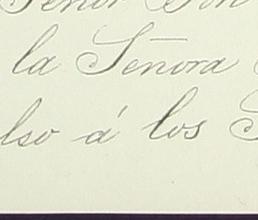 Señor Don
la Señora
lso á los S